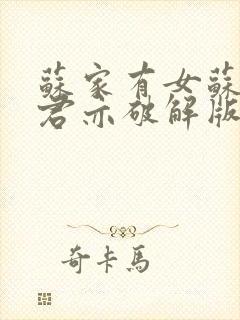 蘇家有女蘇
君亦破解版
奇卡馬